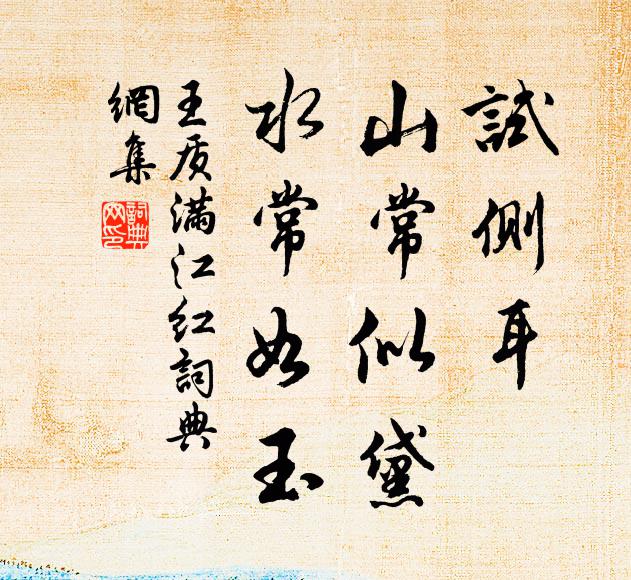 試側耳
山常似黛
水常如玉
王质滿江红詞典
網集
詞典
网印